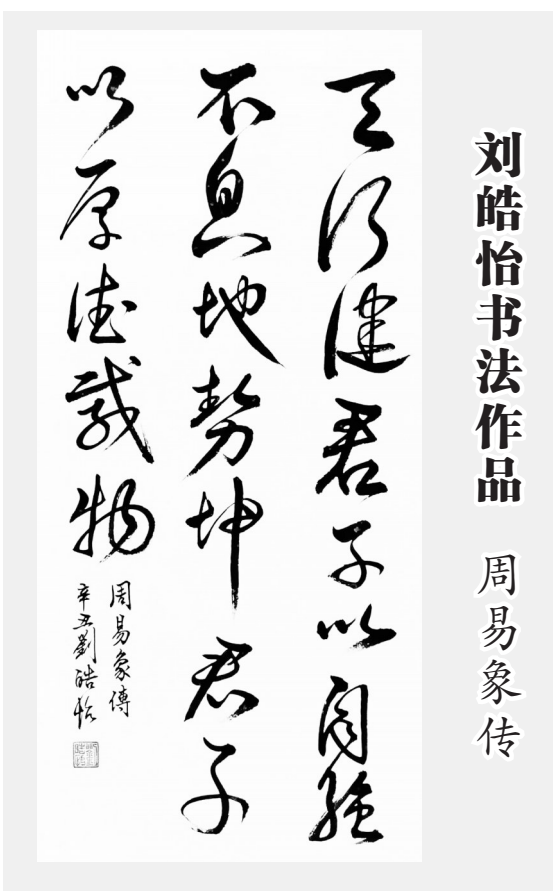 刘皓怡书法作品 周易象传
天行健君子以自强
不息地勢坤君子
以厚德載物
周易象傳
辛丑劉皓怡